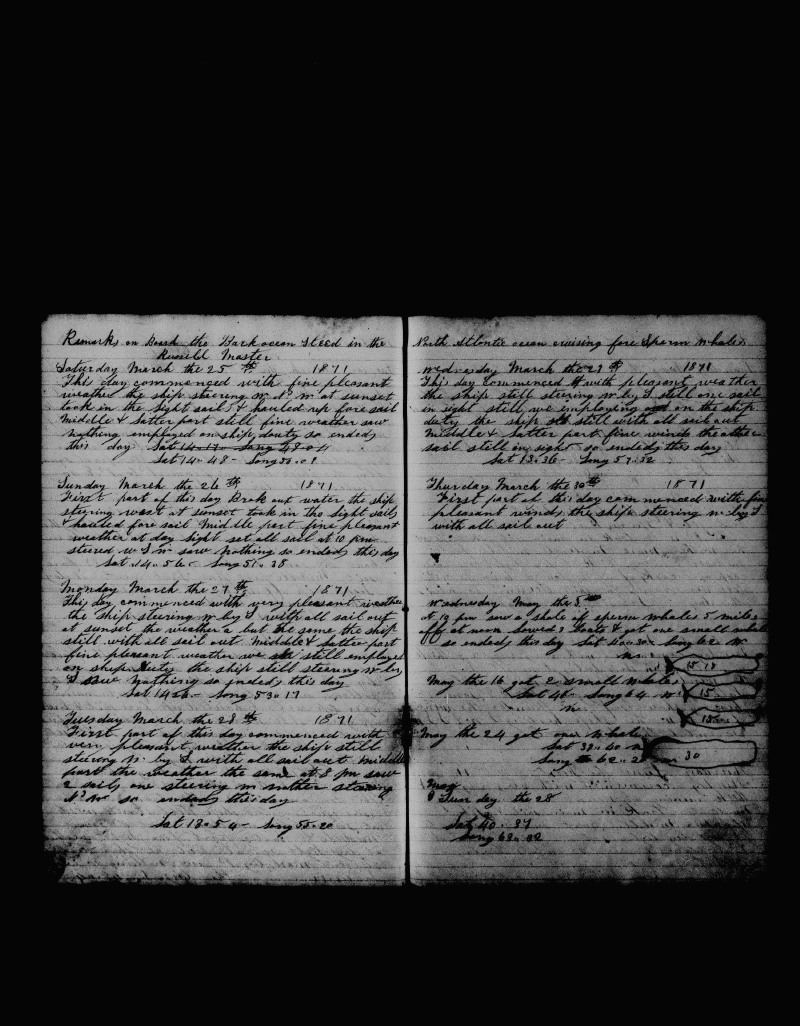 Remarks on Board the Bark ocean Steed in the
Russell Master
Saturday March the 25 th 1871
This day commenced with fine pleasant
weather the ship steering at sunset
took in the light sails & hauled up fore sail
Middle & latter part still fine weather saw
nothing employed on ship duty so ended
this day Lat 14.17 Long 48.01
Lat 14-48- Long 50.01
Sunday March the 26 th 1871
First part of this day Brok out water the ship
steering west at sunset took in the light sails
& hauled fore sail Middle part fine pleasant
weather at day light set all sail at 10 pm
steered w S w saw nothing so ended this day
Lat 14. 56- Long 51. 38
Monday March the 27 th 1871
This day commenced with very pleasant weather
the ship steering w by S with all sail out
at sunset the weather but the same the ship
still with all sail out Middle & latter part
fine pleasant weather we still employed
on ship duty the ship still steering w by
S saw nothing so inded this day
Lat 14 26- Long 53 0 17
Tuesday March the 28 th 1871
First part of this day commenced with
very pleasant weather the ship still
steering w by S with all sail out middle
part the weather the same at 8 pm saw
2 sails one steering another steering
so ended this day
Lat 13.54- Long 55.20
North Atlantic ocean cruising fore Sperm whales
wednesday March the 29 th 1871
This day commenced with pleasant weather
the ship still steering w by S still one sail
in sight still we employing on the ship
duty the ship still with all sail out
middle & latter part fine winds the other
sail still in sight so ended this day
Lat 13.36- Long 57.32
Thursday March the 30 th 1871
First part of this day commenced with fine
pleasant winds the ship steering w by S
with all sail out
wednesday May the 3
At 10 pm saw a shole of sperm whales 5 miles
off at noon lowed 3 boats & got one small whale
so ended this day Lat 40.30- Long 62 w
15 18
May the 16 got 2 small whales
Lat 40- Long 64 w
15
15
May the 24 got one whale
Lat 39.40 n
Long 62. 20
30
May
the 28
Lat 40. 37
Long 62.02